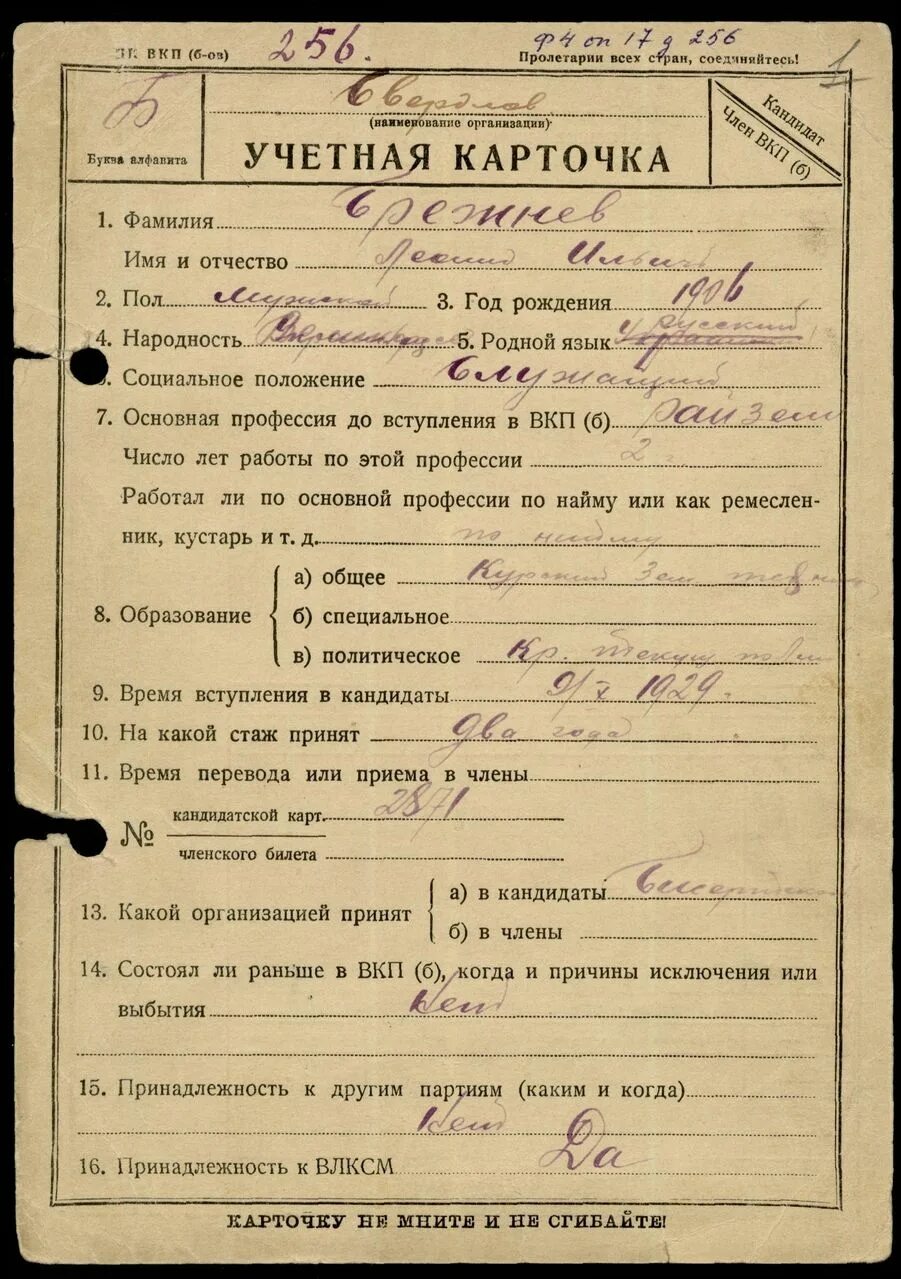 ЦК ВКП (б-ов) 256. ф 4 оп 17 д 256
Пролетарии всех стран, соединяйтесь!
1
Б
Буква алфавита
Свердлов
(наименование организации)
УЧЕТНАЯ КАРТОЧКА
Кандидат
Член ВКП (б)
1. Фамилия Брежнев
Имя и отчество Леонид Ильич
2. Пол Мужской 3. Год рождения 1906
4. Народность 5. Родной язык русский
Социальное положение Служащий
7. Основная профессия до вступления в ВКП (б) райзем
Число лет работы по этой профессии 2
Работал ли по основной профессии по найму или как ремеслен-
ник, кустарь и т. д. по найму
8. Образование
а) общее Курский Зем
б) специальное
в) политическое Кр.
9. Время вступления в кандидаты 9/X 1929.
10. На какой стаж принят Два года
11. Время перевода или приема в члены
№
кандидатской карт. 2871
членского билета
13. Какой организацией принят
а) в кандидаты
б) в члены
14. Состоял ли раньше в ВКП (б), когда и причины исключения или
выбытия Нет
15. Принадлежность к другим партиям (каким и когда)
Нет
16. Принадлежность к ВЛКСМ Да
КАРТОЧКУ НЕ МНИТЕ И НЕ СГИБАЙТЕ!